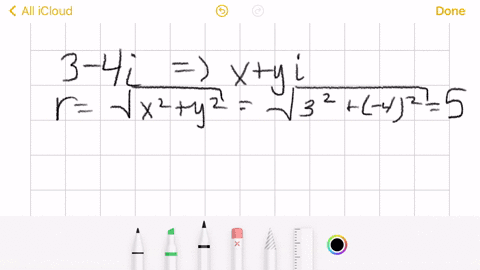 All iCloud Done
3-4i => x+yi
r = √x²+y² = √3²+(-4)² = 5